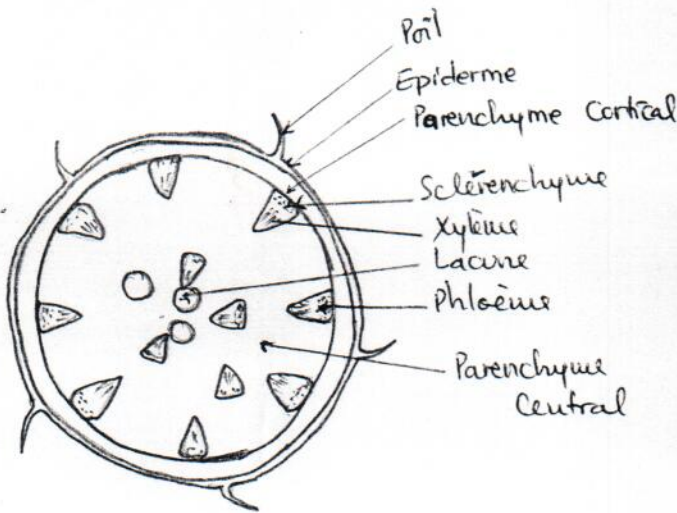 Poil
Epiderme
Parenchyme Cortical
Sclérenchyme
Xylème
Lacune
Phloème
Parenchyme
Central